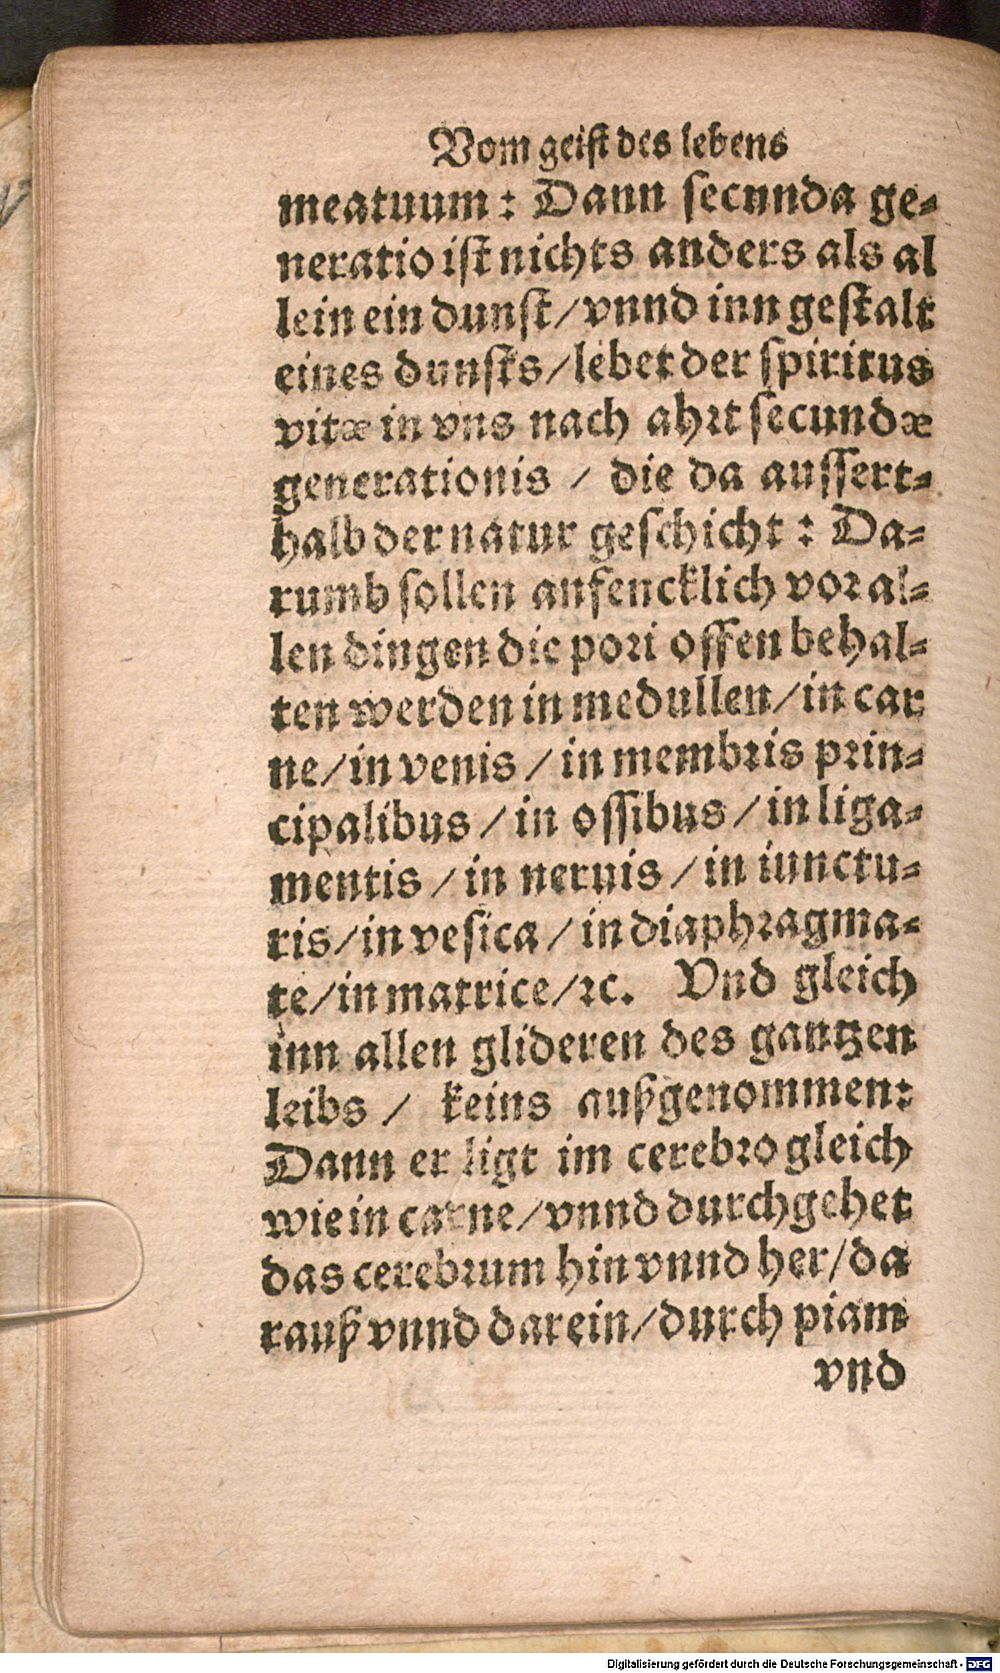 Vom geiſt des lebens
meatuum: Dann ſecunda ge⸗
neratio iſt nichts anders als al
lein ein dunſt/vnnd inn geſtalt
eines dunſts/lebet der ſpiritus
vitæ in vns nach ahꝛt ſecundæ
generationis / die da auſſert⸗
halb der natur geſchicht: Da⸗
rumb ſollen anfencklich voꝛ al⸗
len dingen die poꝛi offen behal⸗
ten werden in medullen/in car
ne/in venis / in membꝛis pꝛin⸗
cipalibus / in oſſibus / in liga⸗
mentis / in neruis / in iunctu⸗
ris/in veſica / in diaphꝛagma⸗
te/in matrice/ꝛc. Vnd gleich
inn allen glideren des gantzen
leibs / keins außgenommen:
Dann er ligt im cerebꝛo gleich
wie in carne/vnnd durchgehet
das cerebꝛum hin vnnd her/da
rauß vnnd darein/durch piam
vnd
Digitalisierung gefördert durch die Deutsche Forschungsgemeinschaft - DFG